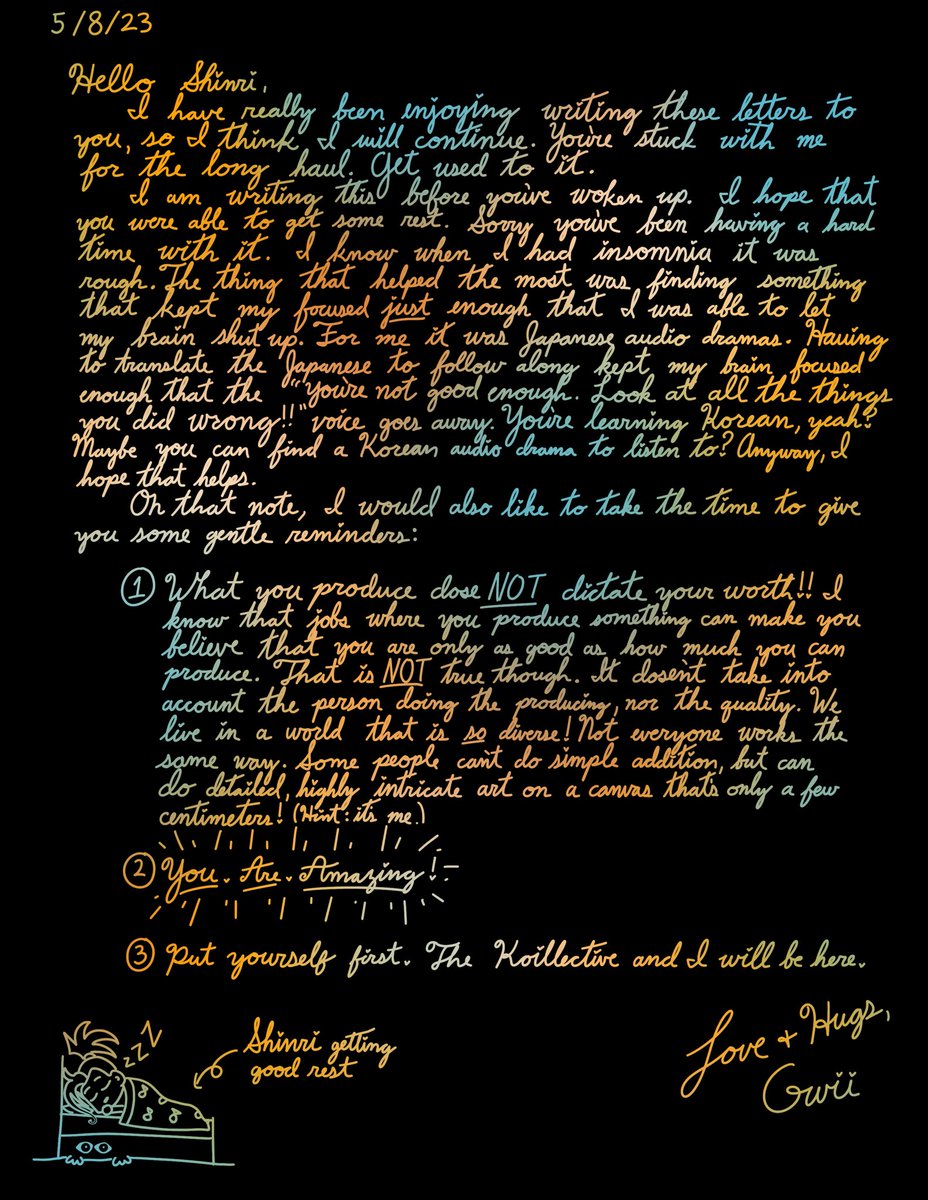 5/8/23
Hello Shinri,
I have really been enjoying writing these letters to
you, so I think I will continue. You're stuck with me
for the long haul. Get used to it.
I am writing this before you've woken up. I hope that
you were able to get some rest. Sorry you've been having a hard
time with it. I know when I had insomnia it was
rough. The thing that helped the most was finding something
that kept my focused just enough that I was able to let
my brain shut up. For me it was Japanese audio dramas. Having
to translate the Japanese to follow along kept my brain focused
enough that the "You're not good enough. Look at all the things
you did wrong!!" voice goes away. You're learning Korean, yeah?
Maybe you can find a Korean audio drama to listen to? Anyway, I
hope that helps.
On that note, I would also like to take the time to give
you some gentle reminders:
① What you produce dose NOT dictate your worth!! I
know that jobs where you produce something can make you
believe that you are only as good as how much you can
produce. That is NOT true though. It dosen't take into
account the person doing the producing, nor the quality. We
live in a world that is so diverse! Not everyone works the
same way. Some people can't do simple addition, but can
do detailed, highly intricate art on a canvas that's only a few
centimeters! (Hint: it's me.)
② You. Are. Amazing!
③ Put yourself first. The Koillective and I will be here.
Love + Hugs,
Gwii
Shinri getting
good rest
zzz